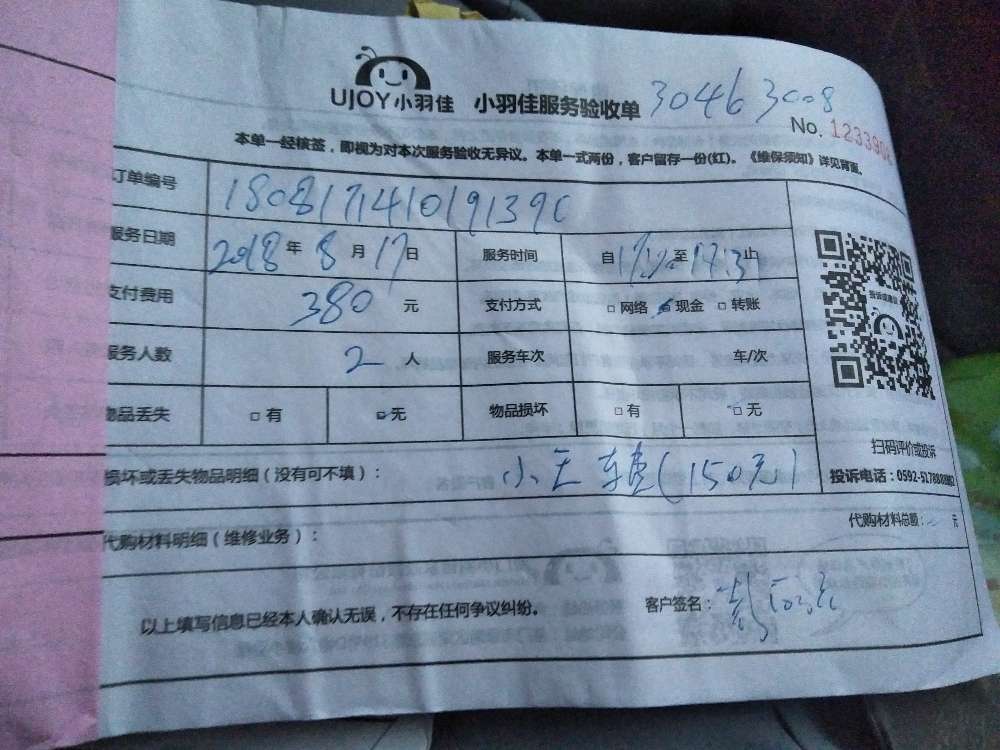 UJOY小羽佳 小羽佳服务验收单 30463008
No. 123390
本单一经核签，即视为对本次服务验收无异议。本单一式两份，客户留存一份(红)。《维保须知》详见背面。
订单编号 180817141019139C
服务日期 2018 年 8 月 17 日 服务时间 自 至 17:3 止
支付费用 380 元 支付方式 □网络 现金 □转账
服务人数 2 人 服务车次 车/次
物品丢失 □有 □无 物品损坏 □有 □无
投诉或建议
扫码评价或投诉
投诉电话：0592-5178
损坏或丢失物品明细（没有可不填）： 小 车费(150元)
代购材料明细（维修业务）： 代购材料总额： 元
以上填写信息已经本人确认无误，不存在任何争议纠纷。 客户签名：